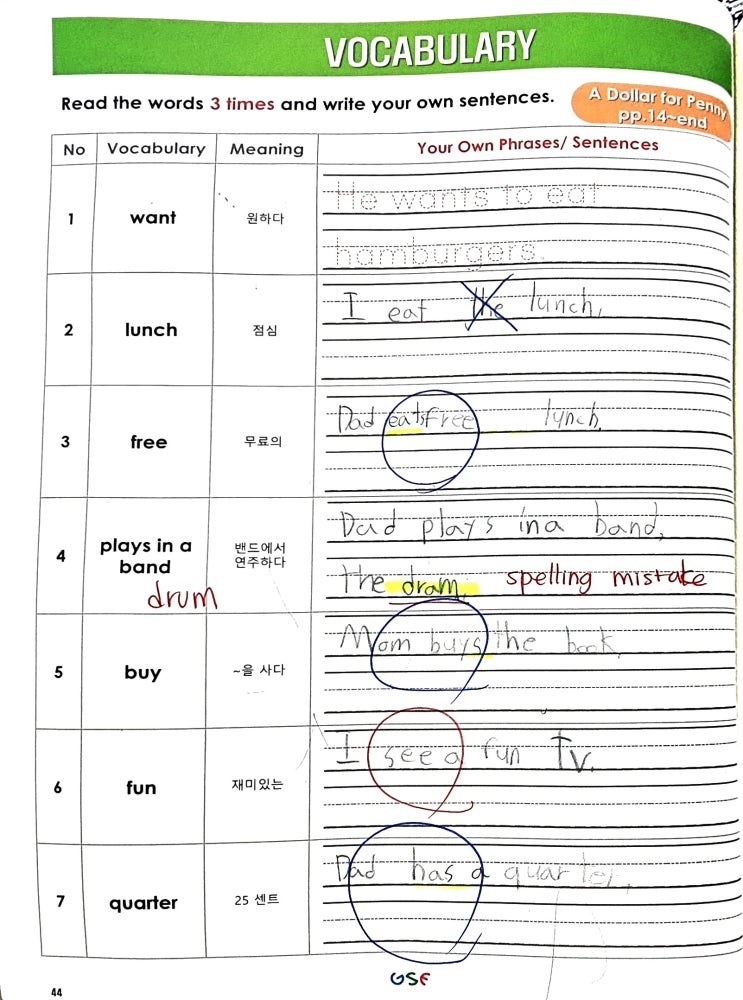 VOCABULARY
Read the words 3 times and write your own sentences.
A Dollar for Penny
pp.14~end
No Vocabulary Meaning Your Own Phrases/ Sentences
1 want 원하다 He wants to eat
hamburgers.
2 lunch 점심 I eat the lunch.
3 free 무료의 Dad eats free lunch.
4 plays in a band 밴드에서 연주하다 Dad plays in a band,
the dram. spelling mistake
drum
5 buy ~을 사다 Mom buys the book.
6 fun 재미있는 I see a fun Tv.
7 quarter 25 센트 Dad has a quarter.
GSE
44